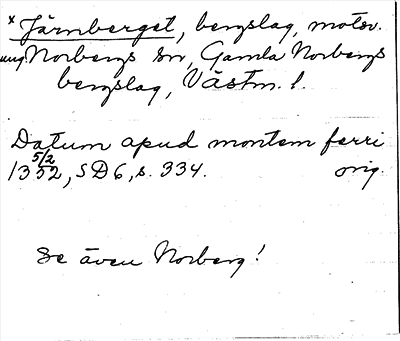 * Järnberget, bergslag, motsv.
ung. Norbergs sn, Gamla Norbergs
bergslag, Västm. l.
Datum apud montem ferri
13 5/2 52, SD 6, s. 334. orig.
Se även Norberg!